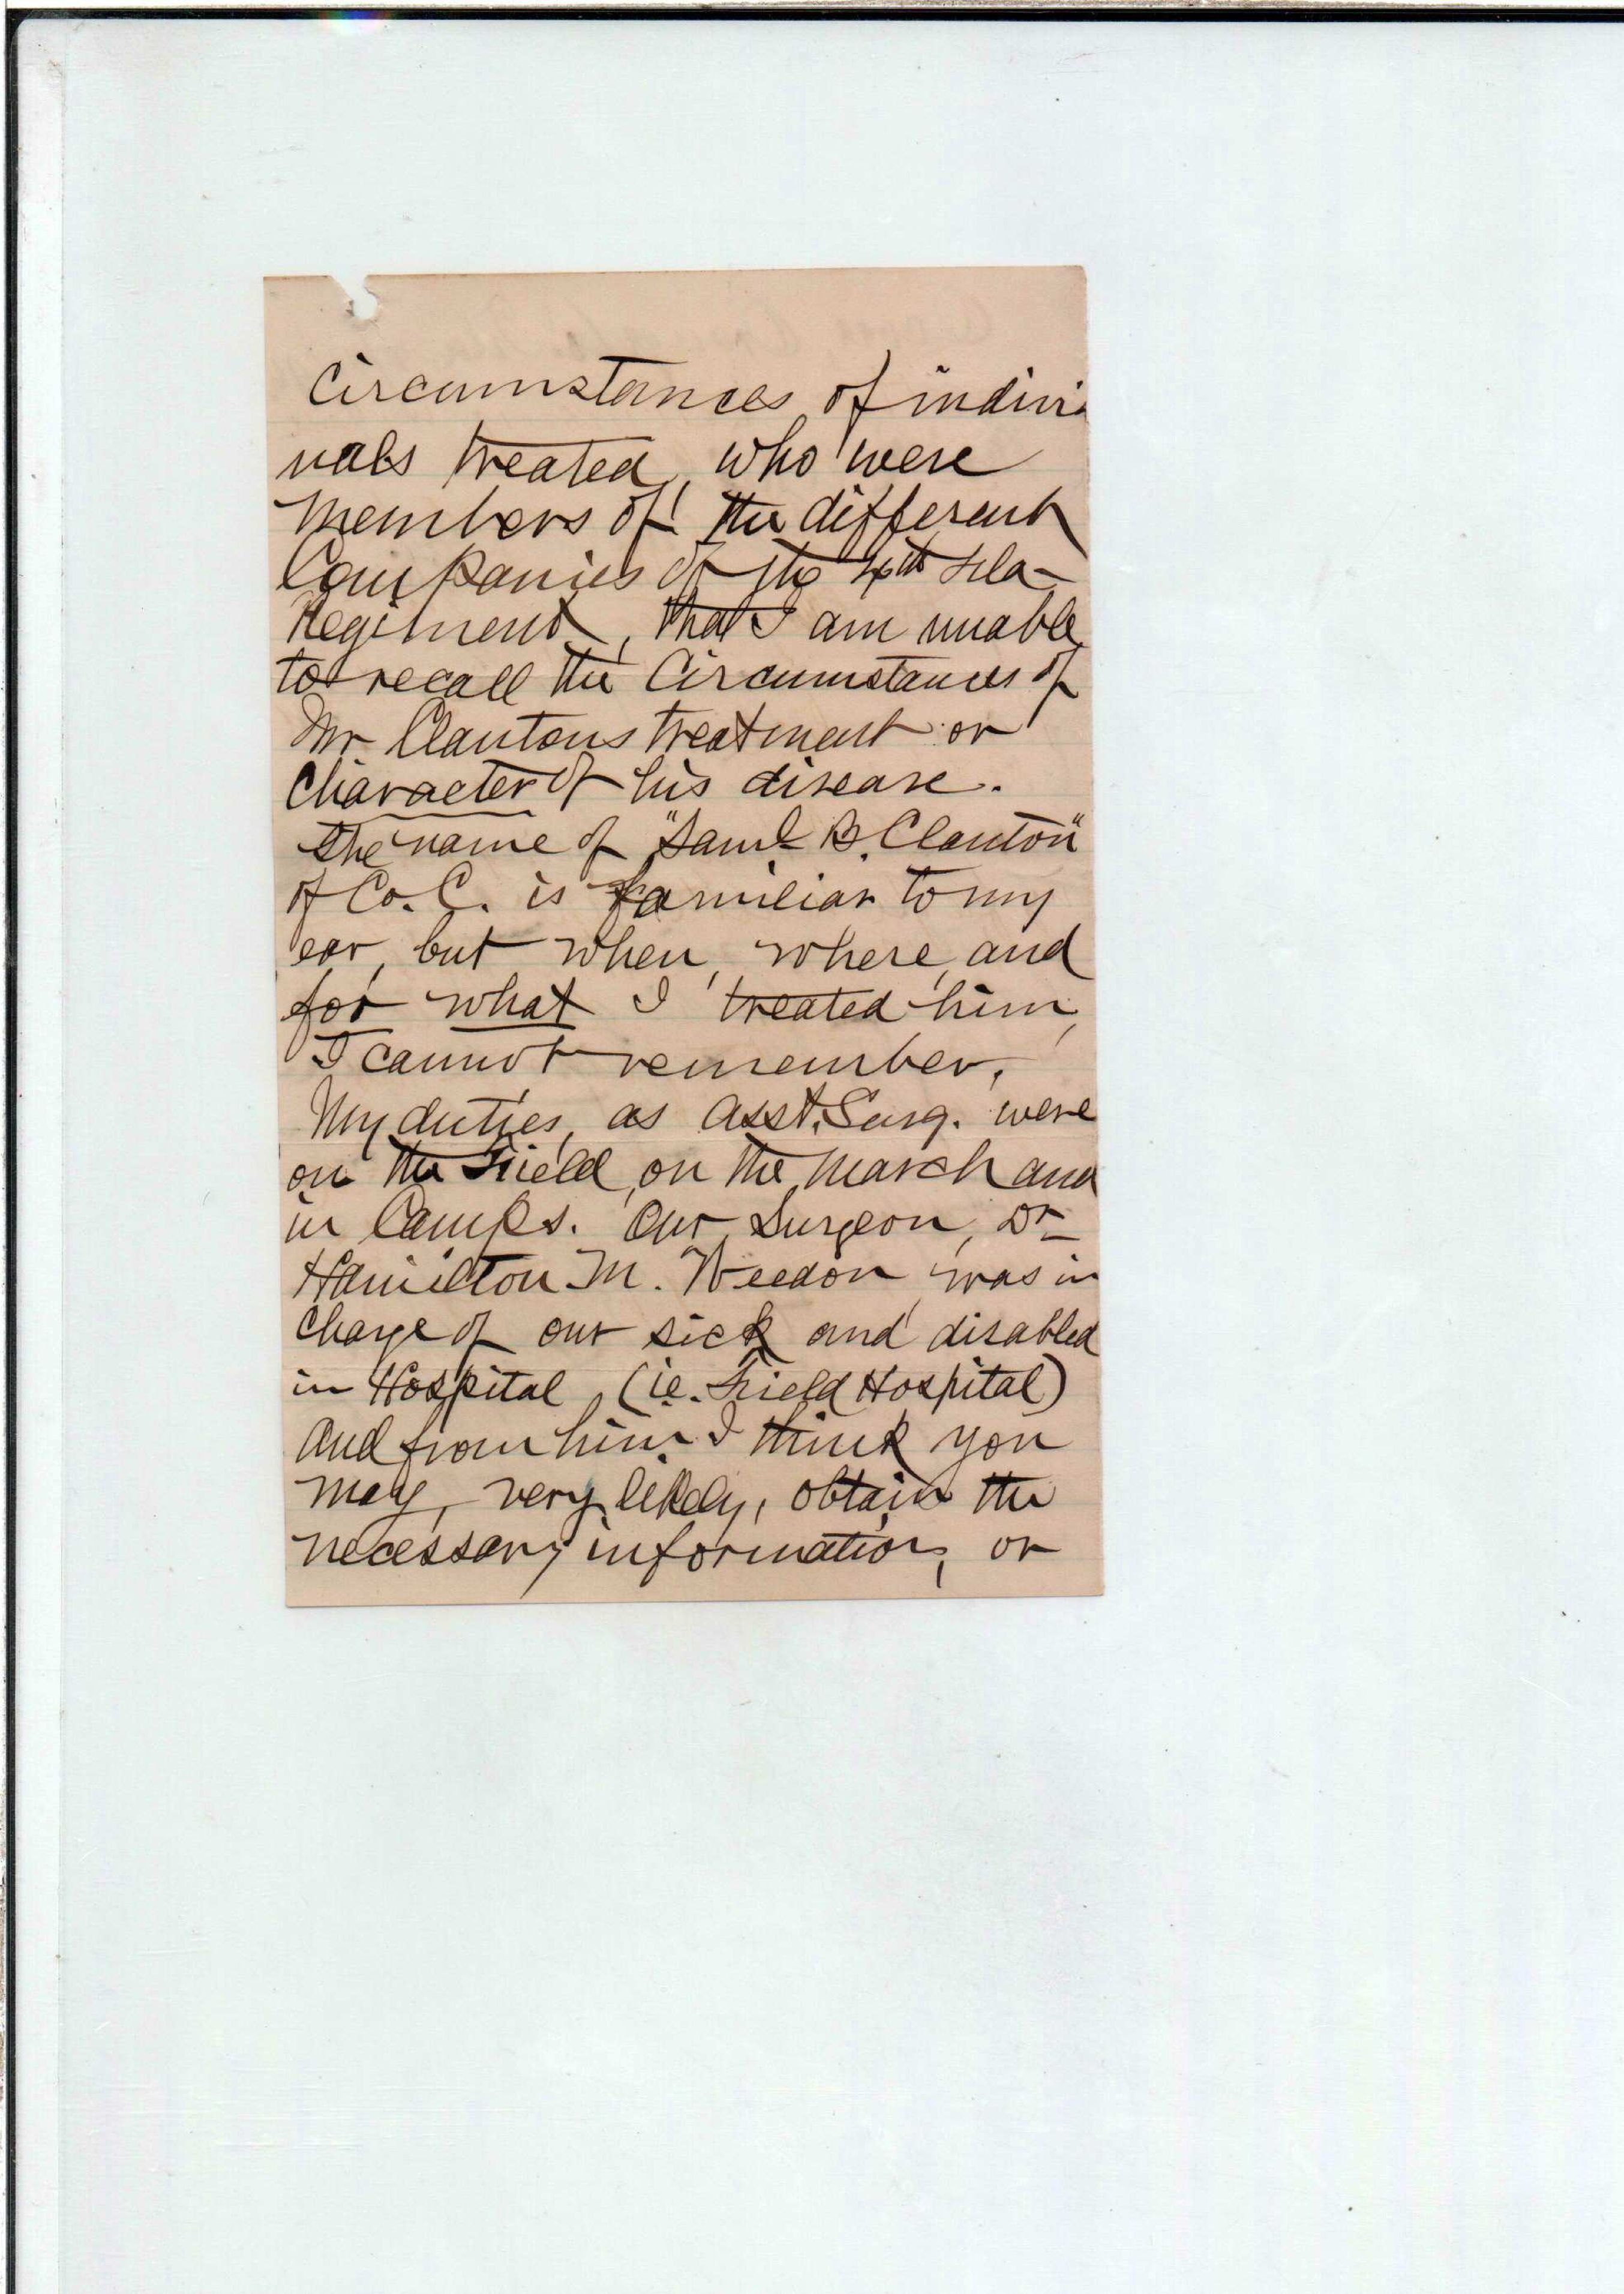 Circumstances of indivi
uals treated, who were
members of the different
Companies of the 4th Fla-
Regiment, that I am unable
to recall the Circumstances of
Mr Clantons treatment or
Character of his disease.
The name of "Saml B. Clanton"
of Co. C. is familiar to my
ear, but when, where, and
for what I treated him,
I cannot remember.
My duties, as Asst. Surg. were
on the Field, on the March and
in Camps. Our Surgeon, Dr
Hamilton M. Weedon was in
Charge of our sick and disabled
in Hospital, (ie. Field Hospital)
and from him I think you
may, very likely, obtain the
necessary information, or